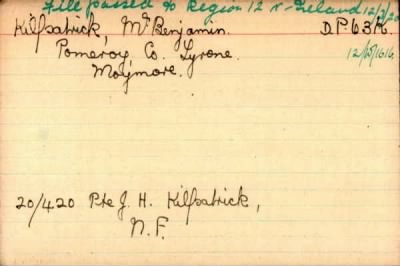 File passed to Region 12 v. Ireland 12/9/20
Kilpatrick, Mr Benjamin. D.P.63K.
Pomeroy, Co. Tyrone. 12/5/1616.
Moymore.
20/420 Pte J. H. Kilpatrick,
N.F.